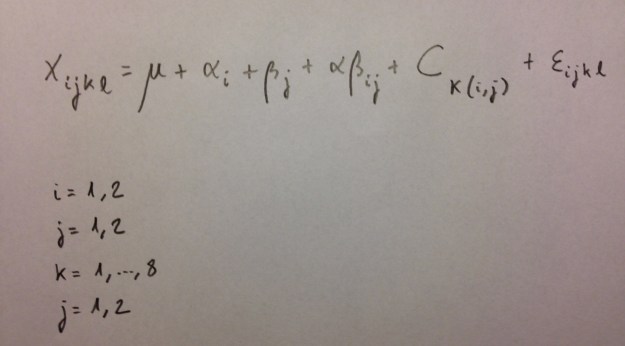 X_{ijkl} = μ + α_i + β_j + αβ_{ij} + C_{k(i,j)} + ε_{ijkl}
i = 1,2
j = 1,2
k = 1,...,8
j = 1,2